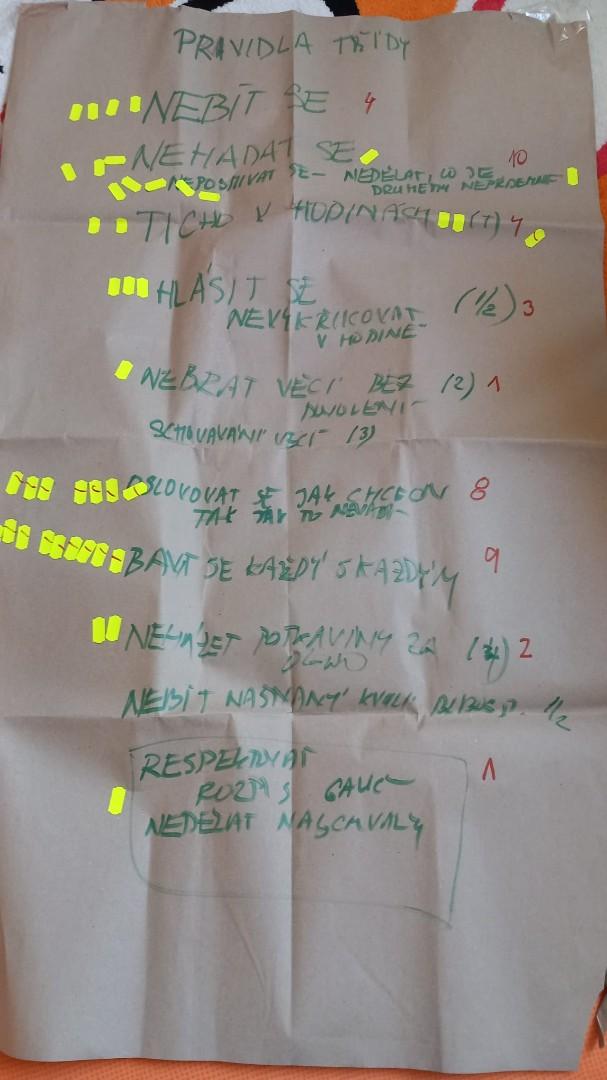 PRAVIDLA TŘÍDY
NEBÍT SE 4
NEHÁDAT SE 10
NEPOSÍVAT SE - NEDĚLAT, CO JE
DRUHÉMU NEPŘÍJEMNÉ
TICHO V HODINÁCH (1) 4
HLÁSIT SE (1/2) 3
NEVYKŘIKOVAT
V HODINĚ
NEBRAT VĚCI BEZ (2) 1
DOVOLENÍ
SCHOVÁVÁNÍ VĚCÍ (3)
OSLOVOVAT SE JAK CHCEOU 8
TAK JAK TO NEVADÍ
BAVIT SE KAŽDÝ S KAŽDÝM 9
NEHÁZET POTRAVINY ZA 2
OKNO
NEBÍT NAŠTVANÝ KVŮLI 1/2
RESPEKTOVAT 1
GAUČ
NEDĚLAT NASCHVÁLY